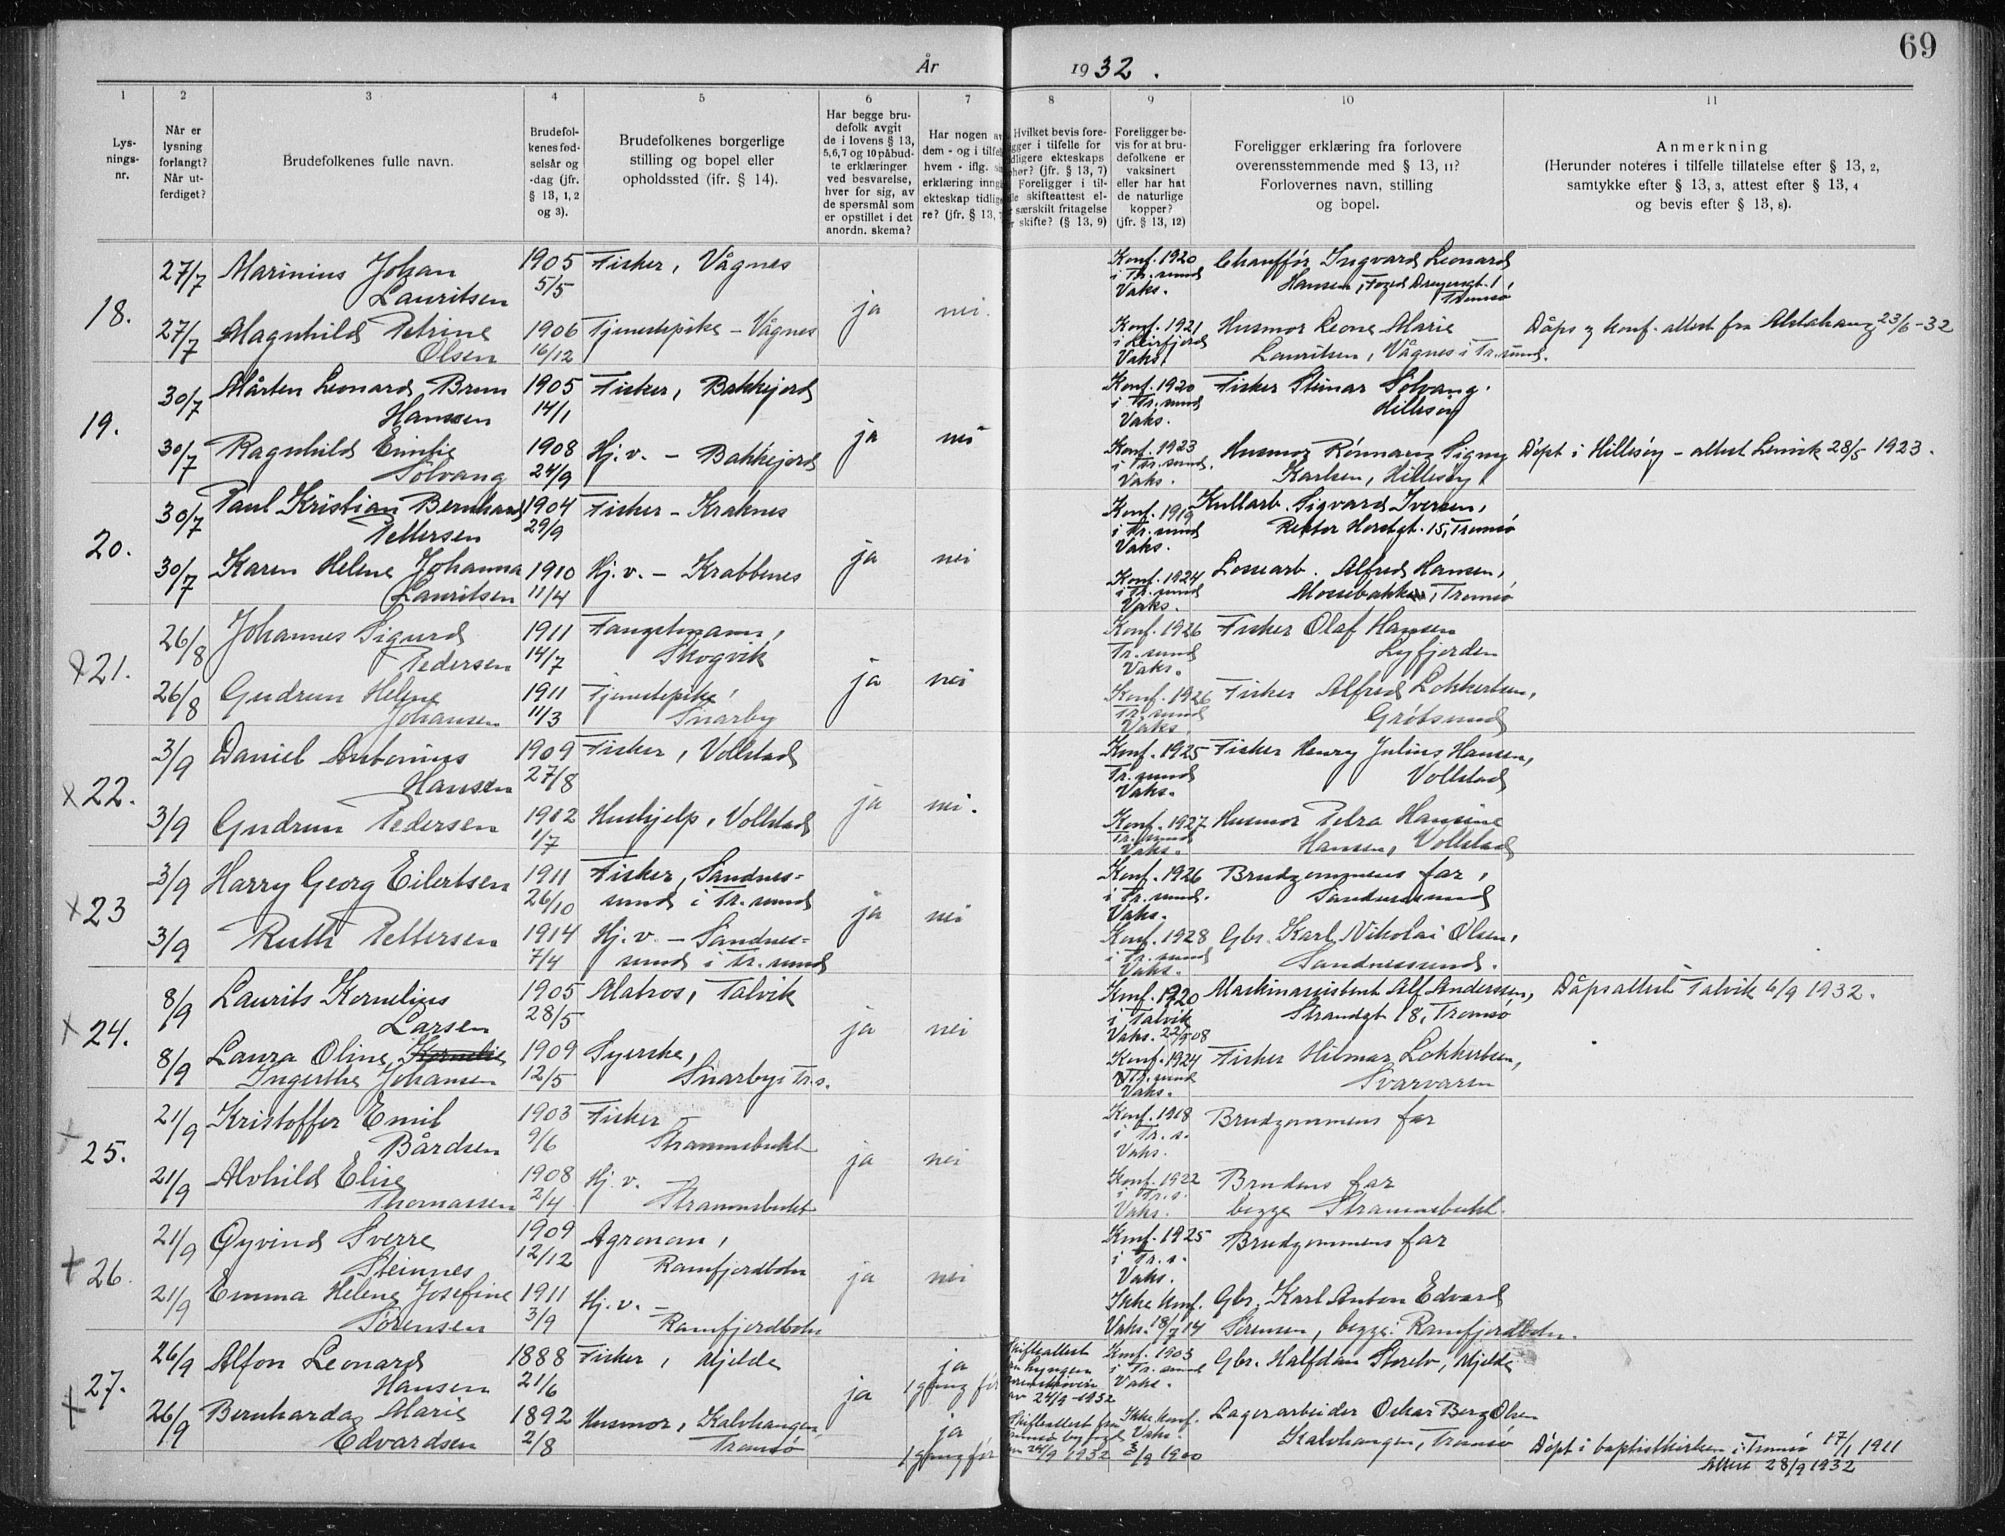 69
År 1932.
1 2 3 4 5 6 7 8 9 10 11
Lys-
nings-
nr.
Når er
lysning
forlangt?
Når ut-
ferdiget?
Brudefolkenes fulle navn.
Brudefol-
kenes fød-
selsår og
-dag (jfr.
§ 13, 1, 2
og 3).
Brudefolkenes borgerlige
stilling og bopel eller
opholdssted (ifr. § 14).
Har begge bru-
defolk avgit
de i lovens § 13,
5,6,7 og 10 påbud-
te erklæringer
ved besvarelse,
hver for sig, av
de spørsmål som
er opstillet i det
anordn. skema?
Har nogen av
dem - og i tilfel
hvem - iflg. s
erklæring inng
ekteskap tidlig
re? (jfr. § 13,
Hvilket bevis fore-
gger i tilfelle for
dligere ekteskaps
phør? (jfr. § 13, 7)
Foreligger i til-
lle skifteattest el-
særskilt fritagelse
r skifte? (§ 13, 9)
Foreligger be-
vis for at bru-
defolkene er
vaksinert
eller har hat
de naturlige
kopper?
(jfr. § 13, 12)
Foreligger erklæring fra forlovere
overensstemmende med § 13, 11?
Forlovernes navn, stilling
og bopel.
Anmerkning
(Herunder noteres i tilfelle tillatelse efter § 13, 2,
samtykke efter § 13, 3, attest efter § 13, 4
og bevis efter § 13, 8).
18.
27/7 Marinius Johan
Lauritsen
1905
5/5
Fisker, Vågnes
ja nei.
Konf. 1920
i Tr. sund
Vaks.
Chauffør Ingvard Leonard
Hansen,
Tromsø
27/7 Magnhild Petrine
Olsen
1906
16/12
Tjenestepike - Vågnes
Konf. 1921
i Leirfjord
Vaks.
Husmor Leone Marie
Lauritsen, Vågnes i Tr.sund.
Dåps og konf. attest fra Alstahaug 23/6-32
19.
30/7 Mårten Leonard Brun
Hansen
1905
14/1
Fisker, Bakkejord
ja nei
Konf. 1920
i Tr. sund
Vaks.
Fisker Steinar Solvang.
Hillesøy
30/7 Ragnhild Emilie
Solvang
1908
24/9
Hj.v. - Bakkejord
Konf. 1923
i Tr. sund.
Vaks.
Husmor Rønnaug Signy
Karlsen, Hillesøy
Døpt i Hillesøy - attest Lenvik 28/5 1923.
20.
30/7 Paul Kristian Bernhard
Pettersen
1904
29/9
Fisker - Kraknes
ja nei
Konf. 1919
i Tr. sund
Vaks.
Kullarb. Sigvard Iversen,
Rektor Horstgt. 15, Tromsø
30/7 Karen Helene Johanna
Lauritsen
1910
11/4
Hj.v. - Krabbenes
Konf. 1924
i Tr. sund
Vaks.
Lossearb. Alfred Hansen,
Tromsø
x21.
26/8 Johannes Sigurd
Pedersen
1911
14/7
Fangstmann,
Skogvik
ja nei
Konf. 1926
Tr. sund
Vaks.
Fisker Olaf Hansen
Lyfjorden
26/8 Gudrun Helene
Johansen
1911
11/3
Tjenestepike,
Snarby
Konf. 1926
Tr. sund
Vaks.
Fisker Alfred Lokkertsen,
Grøtsund
x22.
3/9 Daniel Antonius
Hansen
1909
27/8
Fisker, Vollstad
ja nei.
Konf. 1925
Tr. sund
Vaks.
Fisker Henry Julius Hansen,
Vollstad
3/9 Gudrun Pedersen
1912
1/7
Hushjelp, Vollstad
Konf. 1927
Tr. sund
Vaks.
Husmor Petra Hansine
Hansen, Vollstad
x23
3/9 Harry Georg Eilertsen
1911
26/10
Fisker, Sandnes=
sund i Tr. sund
ja nei
Konf. 1926
i Tr. sund.
Vaks.
Brudgommens far,
Sandnessund
3/9 Ruth Pettersen
1914
7/4
Hj.v. - Sandnes=
sund i Tr. sund
Konf. 1928
i Tr. sund
Vaks.
Gbr. Karl Nikolai Olsen,
Sandnessund.
x24.
8/9 Laurits Kornelius
Larsen
1905
28/5
Matros, Talvik
ja nei
Konf. 1920
i Talvik
Vaks. 22/9 08
Maskinassistent Alf Anderssen,
Strandgt 18, Tromsø
Dåpsattest Talvik 6/9 1932.
8/9 Laura Oline Kornelie
Ingerthe Johansen
1909
12/5
Syerske,
Snarby Tr.s.
Konf. 1924
i Tr. sund
Vaks.
Fisker Hilmar Lokkertsen,
Svarvaren
x25.
21/9 Kristoffer Emil
Bårdsen
1903
9/6
Fisker -
Straumsbukt
ja nei
Konf. 1918
i Tr. s.
Vaks.
Brudgommens far
21/9 Alvhild Elise
Thomassen
1908
2/4
Hj.v.
Straumsbukt
Konf. 1922
i Tr. s.
Vaks.
Brudens far
begge Straumsbukt.
+26.
21/9 Øyvind Sverre
Steinnes
1909
12/12
Agronom,
Ramfjordbotn
ja nei
Konf. 1925
i Tr. s.
Vaks.
Brudgommens far
21/9 Emma Helene Josefine
Sørensen
1911
3/9
Hj.v. -
Ramfjordbotn
Ikke konf.
Vaks. 18/7 14
Gbr. Karl Anton Edvard
Sørensen, begge: Ramfjordbotn.
+27.
26/9 Alfon Leonard
Hansen
1888
21/6
Fisker, Mjelde
ja
ja
1 gang før
kifteattest
Lyngen
24/9-1932
Konf. 1903
i Tr. sund
Vaks.
Gbr. Halfdan Storelv, Mjelde
26/9 Bernharda Marie
Edvardsen
1892
2/8
Husmor, Kalvhangen,
Tromsø
ja
1 gang før
kifteattest fra
24/9 1932
Ikke konf.
Vaks.
3/9 1900
Lagerarbeider Oskar Berg Olsen
Kalvhangen, Tromsø
Døpt i baptistkirken i Tromsø 17/1 1911
Attest 28/9 1932